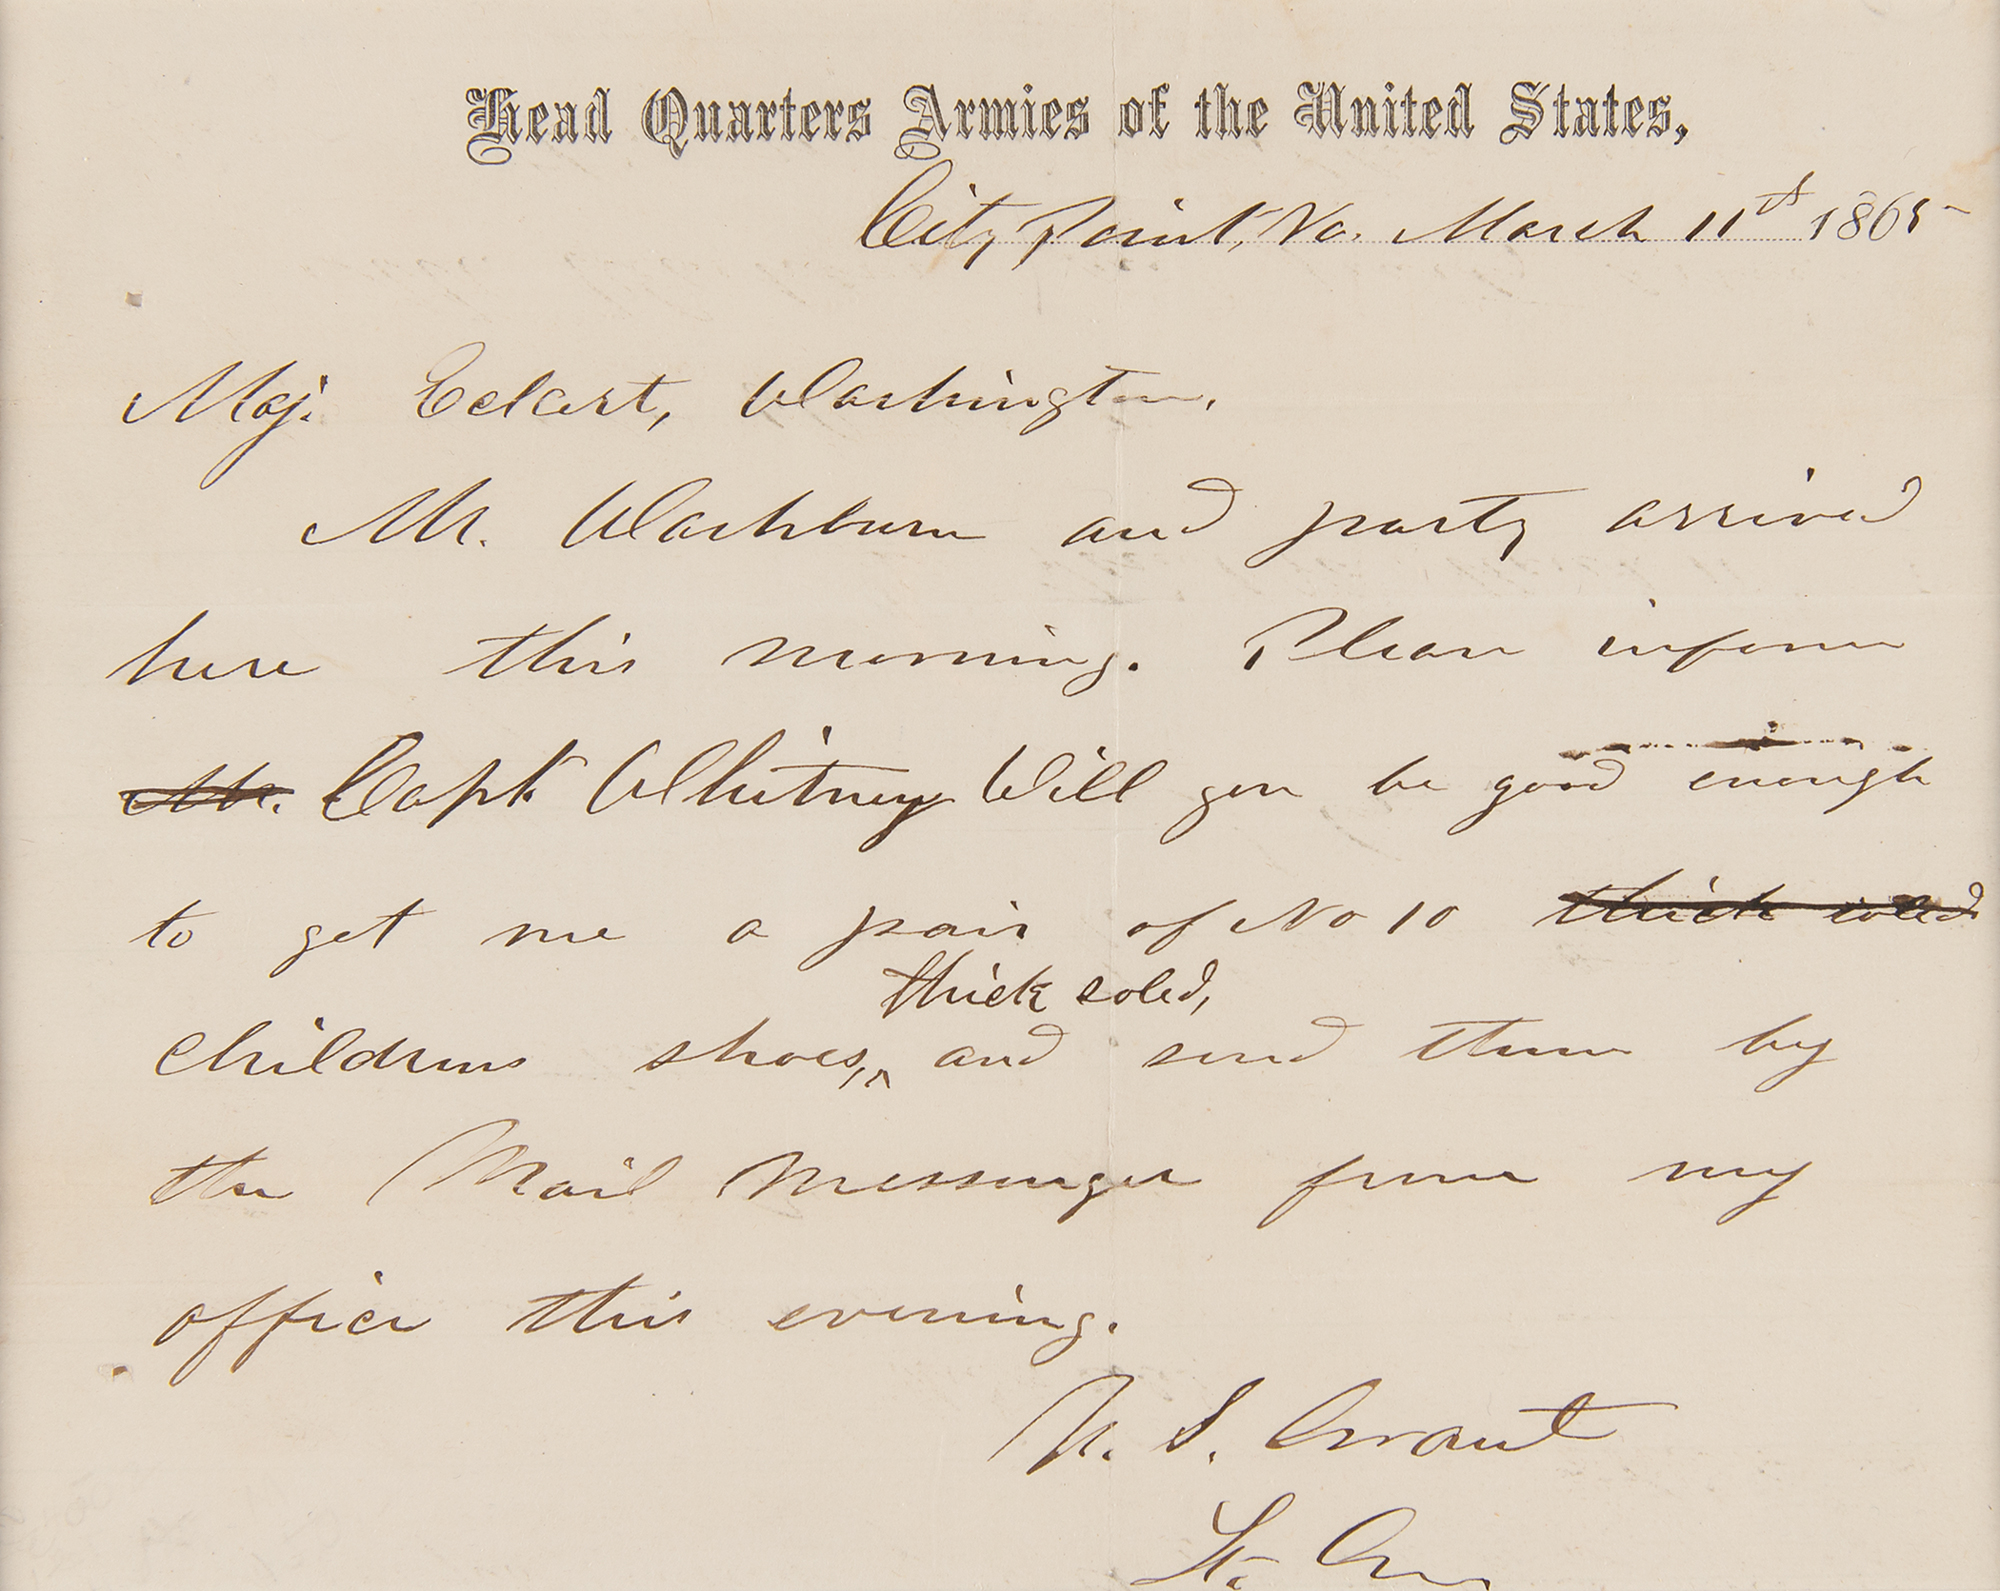 Head Quarters Armies of the United States,
City Point, Va. March 11th 1865
Maj. Eckert, Washington.
Mr. Washburn and party arrived
here this morning. Please inform
Mr. Capt Whitney Will you be good enough
to get me a pair of No 10 thick soled
thick soled,
childrens shoes, ^ and send them by
the Mail Messenger from my
office this evening.
U. S. Grant
Lt. Gn.